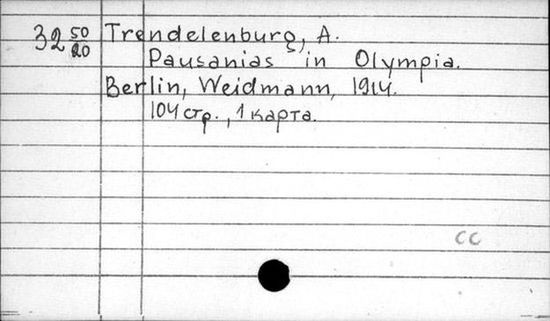 32 50/20 Trendelenburg, A.
Pausanias in Olympia.
Berlin, Weidmann, 1914.
104 стр., 1 карта.
сс